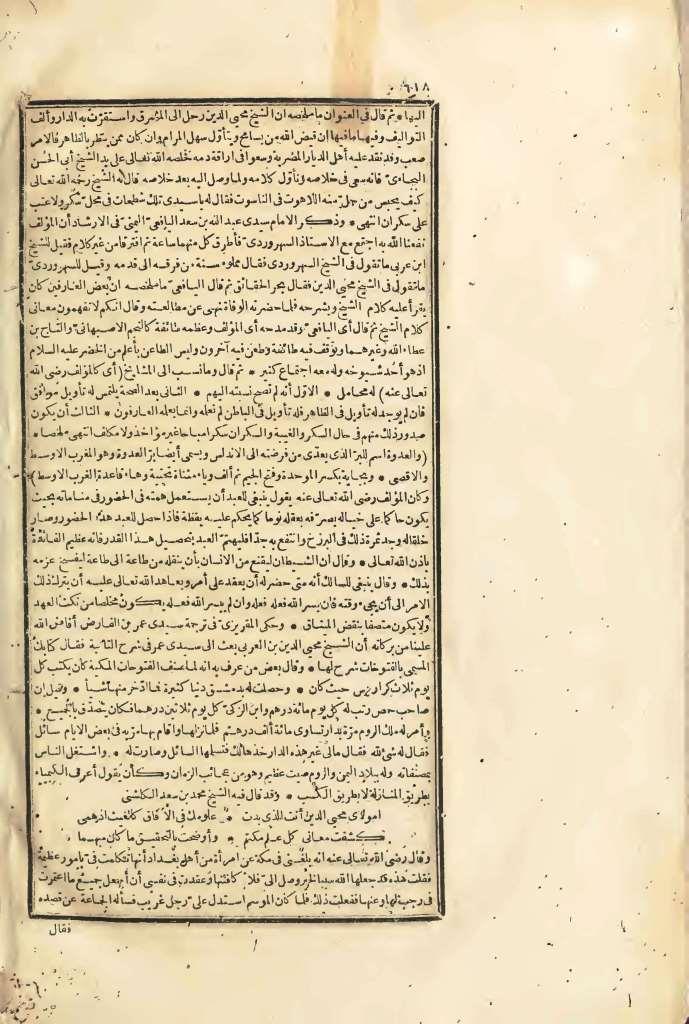 ٦١٨
اليهاء ثم قال في العنوان ما ملخصه ان الشيخ محيي الدين رحل الى المشرق واستقرت به الدار وألف
التواليف وفيها ما فيها ان قيض الله من يسامح ويتأول سهل المرام وان كان ممن ينظر بالظاهر فالامر
صعب وقد نقد عليه أهل الديار المصرية وسعوا في اراقة دمه فخلصه الله تعالى على يد الشيخ أبي الحسن
البجاءى فانه سعى في خلاصه وتأول كلامه ولما وصل اليه بعد خلاصه قال له الشيخ رحمه الله تعالى
كيف يحبس من حل منه اللاهوت في الناسوت فقال له ياسيدى تلك شطحات في محل سكر ولا عتب
على سكران انتهى * وذكر الامام سيدى عبد الله بن سعد اليافعى اليمنى في الارشاد أن المؤلف
نفعنا الله به اجتمع مع الاستاذ السهروردى فأطرق كل منهما ساعة ثم افترقا من غير كلام فقيل للشيخ
ابن عربى ما تقول في الشيخ السهروردى فقال مملوء سنة من فرقه الى قدمه وقيل للسهروردى
ما تقول في الشيخ محيي الدين فقال بحر الحقائق ثم قال اليافعى ما ملخصه ان بعض العارفين كان
يقرأ عليه كلام الشيخ ويشرحه فلما حضرته الوفاة نهى عن مطالعته وقال انكم لا تفهمون معانى
كلام الشيخ ثم قال أى اليافعى وقد مدحه أى المؤلف وعظمه طائفة كالنجم الاصبهانى والتاج بن
عطاء الله وغيرهما وتوقف فيه طائفة وطعن فيه آخرون وليس الطاعن بأعلم من الخضر عليه السلام
اذ هو أحد شيوخه وله معه اجتماع كثير * ثم قال وما نسب الى المشايخ (أى كالمؤلف رضى الله
تعالى عنه) له محامل * الاول أنه لم تصح نسبته اليهم * الثانى بعد الصحة يلتمس له تأويل موافق
فان لم يوجد له تأويل في الظاهر فله تأويل في الباطن لم نعلمه وانما يعلمه العارفون * الثالث أن يكون
صدور ذلك منهم في حال السكر والغيبة والسكران سكرا مباحا غير مؤاخذ ولا مكلف انتهى ملخصا *
(والعدوة اسم للبر الذى يعدى من فرضته الى الاندلس ويسمى أيضا بر العدوة وهو المغرب الاوسط
والاقصى * وبجاية بكسر الموحدة وفتح الجيم ثم ألف وياء مثناة تحتية وهاء قاعدة الغرب الاوسط)
وكان المؤلف رضى الله تعالى عنه يقول ينبغى للعبد أن يستعمل همته في الحضور في مناماته بحيث
يكون حاكما على خياله يصرفه بعقله نوما كما يحكم عليه يقظة فاذا حصل للعبد هذا الحضور وصار
خلقا له وجد ثمرة ذلك في البرزخ وانتفع به جدا فليهتم العبد بتحصيل هذا القدر فانه عظيم الفائدة
باذن الله تعالى * وقال ان الشيطان ليقنع من الانسان بأن ينقله من طاعة الى طاعة ليفسخ عزمه
بذلك * وقال ينبغى للسالك أنه متى حضر له أن يعقد على أمر ويعاهد الله تعالى عليه أن يترك ذلك
الامر الى أن يجىء وقته فان يسر الله فعله فعله وان لم ييسر الله فعله يكون مخلصا من نكث العهد
ولا يكون متصفا بنقض الميثاق * وحكى المقريزى في ترجمة سيدى عمر بن الفارض أفاض الله
علينا من بركاته أن الشيخ محيي الدين بن العربى بعث الى سيدى عمر في شرح التائية فقال كتابك
المسمى بالفتوحات شرح لها * وقال بعض من عرف به انه لما صنف الفتوحات المكية كان يكتب كل
يوم ثلاث كراريس حيث كان * وحصلت له بدمشق دنيا كثيرة فما ادخر منها شيأ * وقيل ان
صاحب حمص رتب له كل يوم مائة درهم وابن الزكى كل يوم ثلاثين درهما فكان يتصدق بالجميع *
وأمر له ملك الروم مرة بدار تساوى مائة ألف درهم فلما نزلها وأقام بها مر به في بعض الايام سائل
فقال له شئ لله فقال مالى غير هذه الدار خذها لك فتسلمها السائل وصارت له * واشتغل الناس
بمصنفاته وله ببلاد اليمن والروم صيت عظيم وهو من عجائب الزمان وكان يقول أعرف الكيمياء
بطريق المنازلة لا بطريق الكسب * وقد قال فيه الشيخ محمد بن سعد الكاشنى
امولاى محيي الدين أنت الذى بدت * علومك في الآفاق كالغيث اذ همى
كشفت معانى كل علم مكتم * وأوضحت بالتحقيق ما كان مبهما
وقال رضى الله تعالى عنه انه بلغنى في مكة عن امرأة من أهل بغداد أنها تكلمت في بأمور عظيمة
فقلت هذه قد جعلها الله سببا لخير وصل الى فلا كافئنها وعقدت في نفسى أن أجعل جميع ما اعتمرت
في رجب لها وعنها ففعلت ذلك فلما كان الموسم استدل على رجل غريب فسأله الجماعة عن قصده
فقال